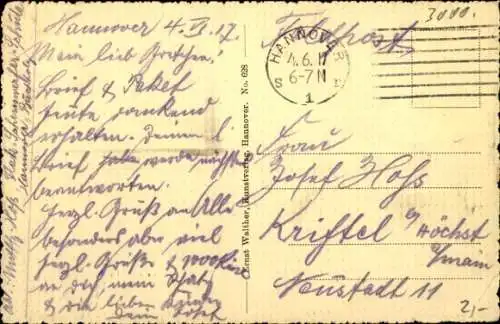 Hannover 4. VI. 17.
Mein lieb Gretchen!
Brief & Paket
heute dankend
erhalten. Deinen l.
Brief habe werde nächstens
beantworten.
Herzl. Grüße an Alle
besonders aber viel
herzl. Grüße & 1000 Küsse
an dich, mein Schatz
& die lieben Kinder
Dein Josef
No. 628
Ernst Walther, Kunstverlag Hannover.
Feldpost
3000.
HANNOVER
4.6.17
6-7 N
S
1
Frau
Josef Hoß
Kriftel b/ Höchst
a/main
Neustadt 11
2,-